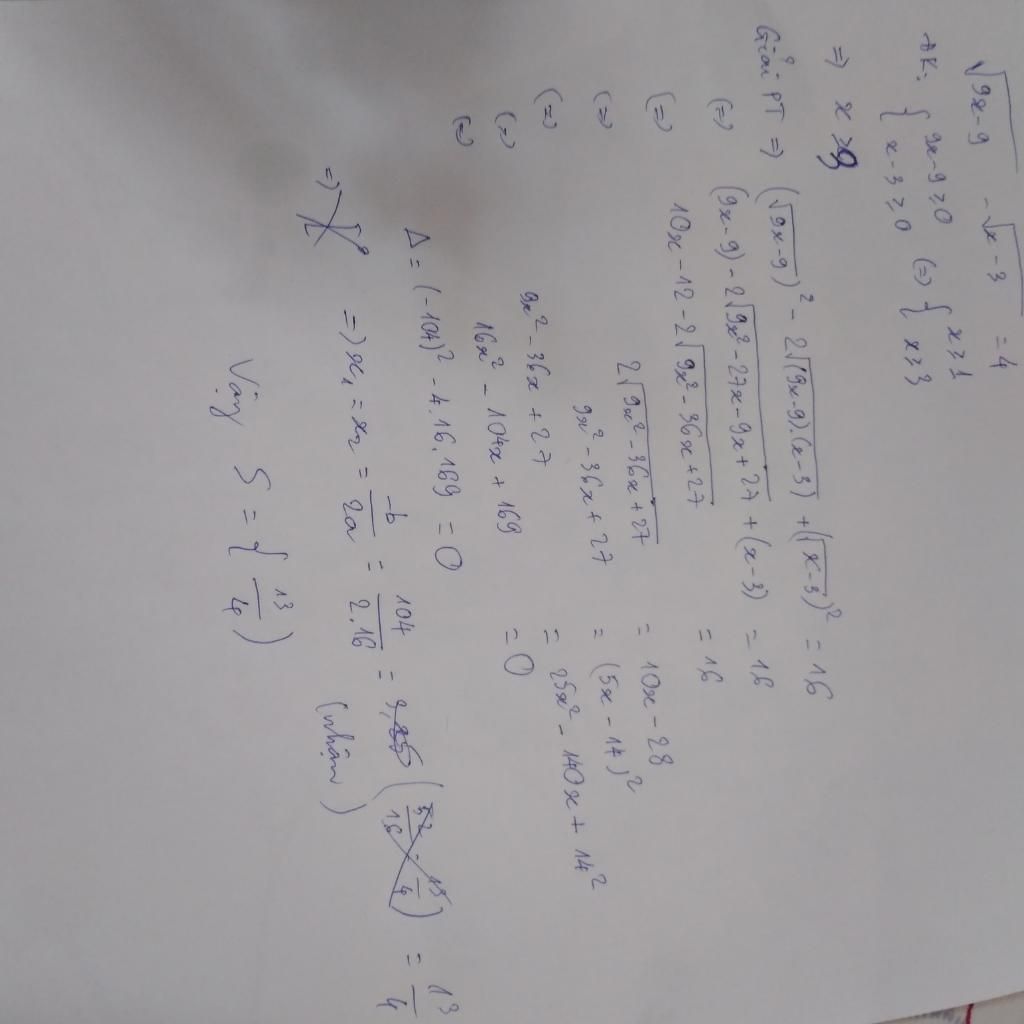 √(9x-9) - √(x-3) = 4
ĐK: { 9x-9 ≥ 0 (=) { x ≥ 1
{ x-3 ≥ 0 { x ≥ 3
=) x ≥
Giải PT =) (√(9x-9))² - 2√((9x-9).(x-3)) + (√(x-3))² = 16
(=) (9x-9) - 2√(9x²-27x-9x+27) + (x-3) = 16
(=) 10x - 12 - 2√(9x²-36x+27) = 16
(=) 2√(9x²-36x+27) = 10x - 28
(=) 9x² - 36x + 27 = (5x - 14)²
(=) 9x² - 36x + 27 = 25x² - 140x + 14²
(=) 16x² - 104x + 169 = 0
Δ = (-104)² - 4.16.169 = 0
=) x₁ = x₂ = -b/2a = 104/2.16 = = 13/4
(nhận)
Vậy S = { 13/4 )